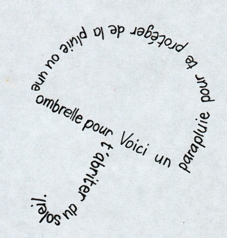 Voici un parapluie pour te protéger de la pluie ou une ombrelle pour t'abriter du soleil.